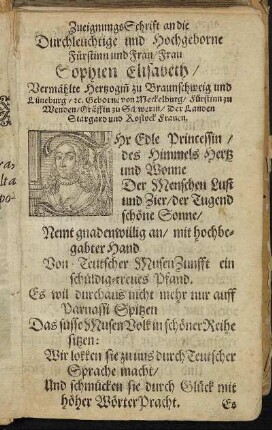 ZueignungsSchrifft an die
Durchleuchtige und Hochgeborne
Fürstinn und Frau / Frau
Sophien Elisabeth /
Vermählte Hertzogin zu Braunschweig und
Lüneburg / ꝛc. Geborne von Meckelburg / Fürstinn zu
Wenden / Gräffin zu Schwerin / Der Landen
Stargard und Rostock Frauen.
IHr Edle Princessin /
des Himmels Hertz
und Wonne
Der Menschen Lust
und Zier / der Tugend
schöne Sonne /
Nemt gnadenwillig an / mit hochbe-
gabter Hand
Von Teutscher MusenZunfft ein
schüldig-treues Pfand.
Es wil durchaus nicht mehr nur auff
Parnassi Spitzen
Das süsse MusenVolk in schöner Reihe
sitzen:
Wir lokken sie zu uns durch Teutscher
Sprache macht /
Und schmücken sie durch Glück mit
höher WörterPracht.
Es